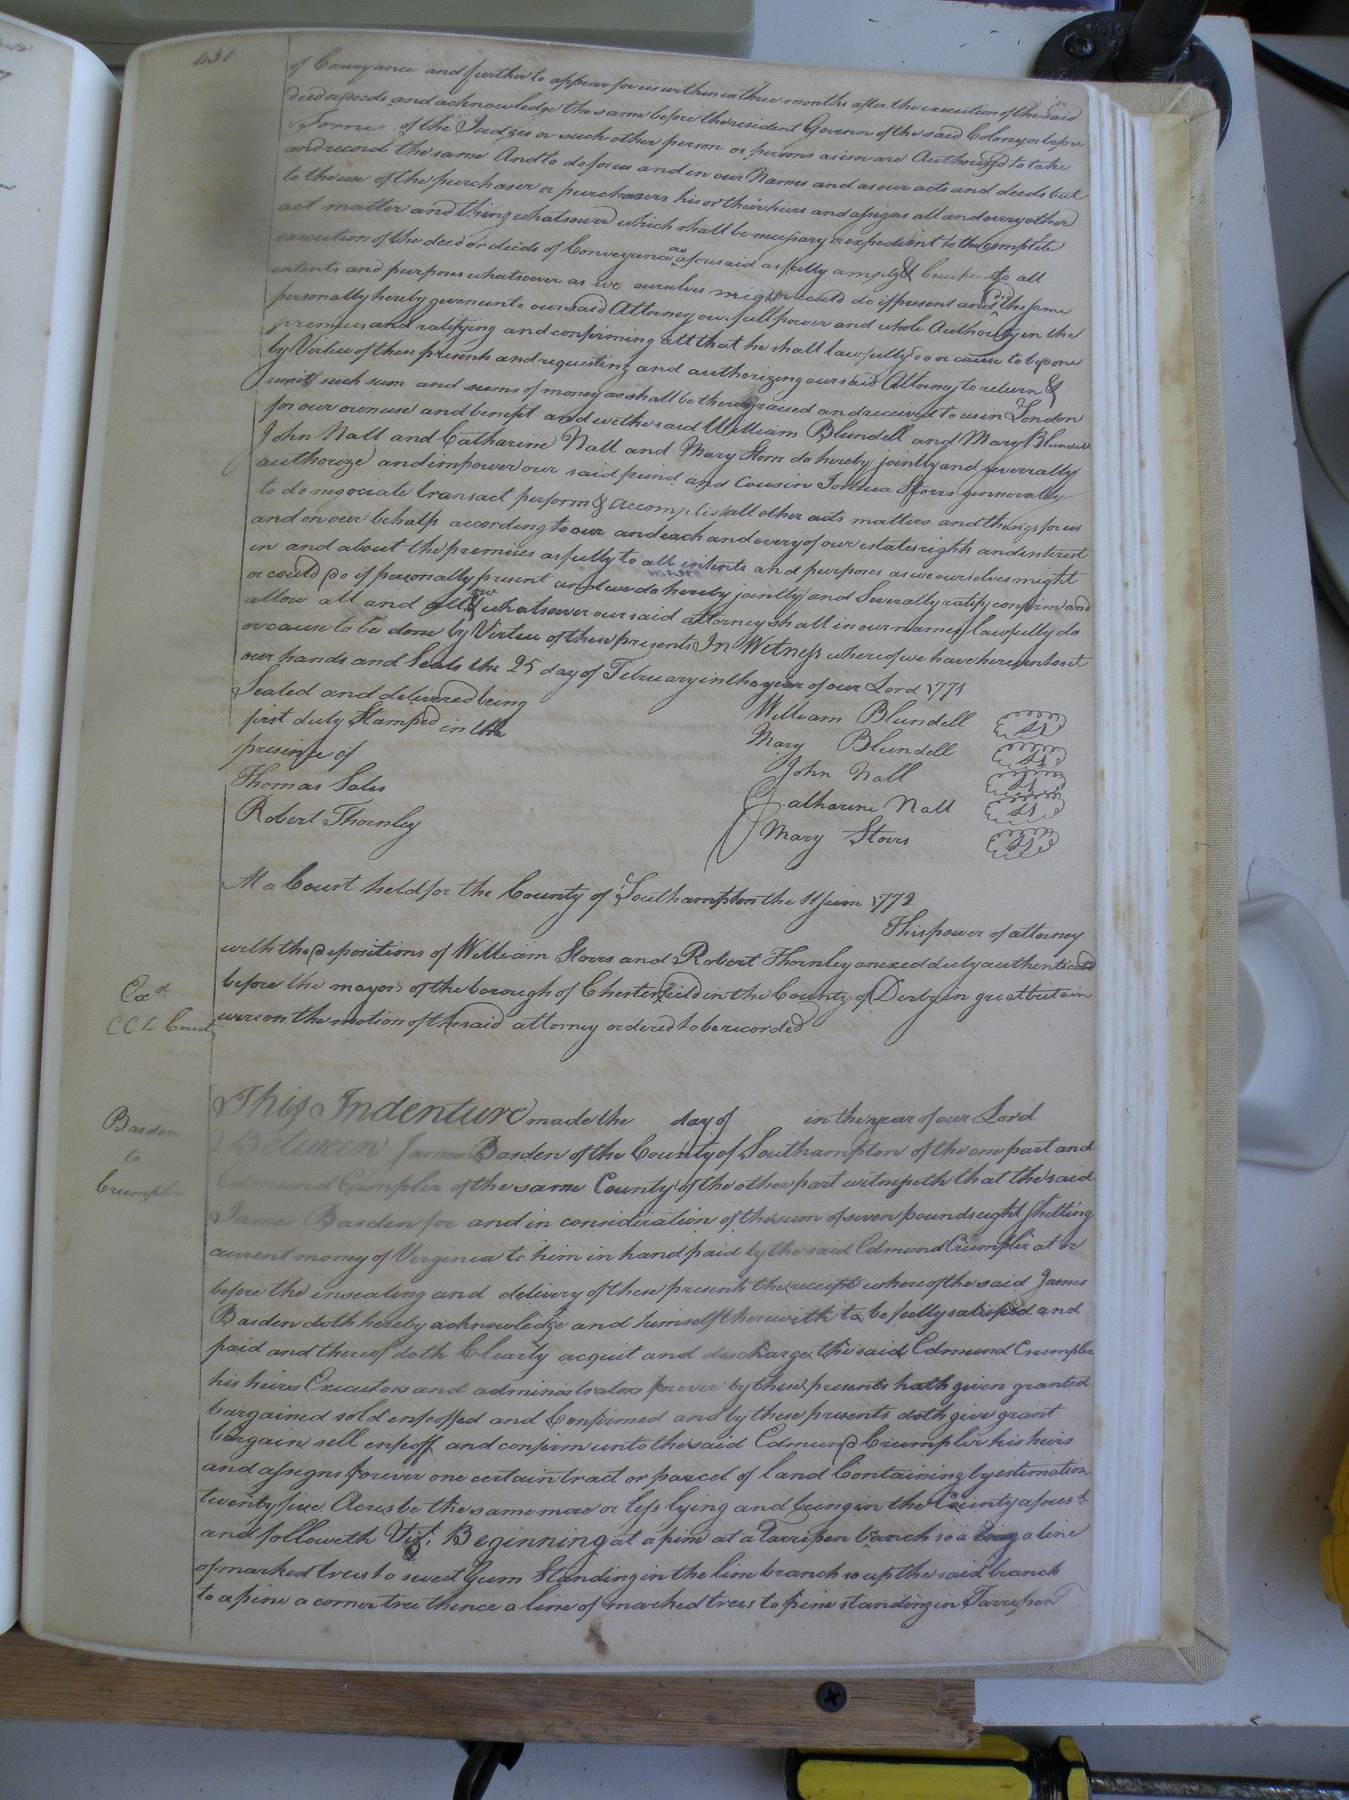 431
of Conveyance and further to appear for us within three months after the execution of the said
deed or deeds and acknowledge the same before the resident Govenor of the said Colony or before
of the Judges or such other person or persons as is or are Authorized to take
and record the same And to do for us and in our Names and as our acts and deeds but
to the use of the purchaser or purchasers his or their heirs and assigns all and every other
act matter and thing whatsoever which shall be necessary or expedient to the complete
execution of the deed or deeds of Conveyance as aforesaid as fully amply & to all
intents and purposes whatsoever as we ourselves might or could do if present and did the same
personally hereby given unto our said Attorney our full power and whole Authority in the
premises and ratifying and confirming all that he shall lawfully do or cause to be done
by Virtue of these presents and requesting and authorizing our said Attorney to return &
remit such sum and sums of money as shall be thereby raised and received to us in London
for our own use and benefit and we the said William Blundell and Mary Blundell
John Nall and Catharine Nall and Mary Storrs do hereby jointly and severally
authorize and impower our said friend and Cousin Joshua Storrs generally
to do negociate transact perform & accomplish all other acts matters and things for us
and on our behalf according to our and each and every of our estates rights and interest
in and about the premises as fully to all intents and purposes as we ourselves might
or could do if personally present and we do hereby jointly and Severally ratify confirm and
allow all and whatsoever our said attorney shall in our names lawfully do
or cause to be done by Virtue of these presents In Witness whereof we have hereunto set
our hands and Seals the 25 day of February in the year of our Lord 1771
Sealed and delivered being
first duly Stamped in the
presence of
Thomas Sales
Robert Thornley
William Blundell LS
Mary Blundell LS
John Nall LS
Catharine Nall LS
Mary Storrs LS
At a Court held for the County of Southampton the 11 June 1772
This power of attorney
with the depositions of William Storrs and Robert Thornley anexed duly authenticated
before the mayor of the borough of Chesterfield in the County of Derby in great britain
were on the motion of the said attorney ordered to be recorded
Exd
Basden
to
Crumpler
This Indenture made the day of in the year of our Lord
Between James Basden of the County of Southampton of the one part and
Edmund Crumpler of the same County of the other part witnesseth that the said
James Basden for and in consideration of the sum of seven pounds eight shilling
current money of Virginia to him in hand paid by the said Edmund Crumpler at or
before the insealing and delivery of these presents the receipt whereof the said James
Basden doth hereby acknowledge and himself therewith to be fully satisfied and
paid and thereof doth Clearly acquit and discharge the said Edmund Crumpler
his heires Executors and administrators forever by these presents hath given granted
bargained sold enfeoffed and Confirmed and by these presents doth give grant
bargain sell enfeoff and confirm unto the said Edmund Crumpler his heirs
and assigns forever one certain tract or parcel of land Containing by estimation
twenty five Acres be the same more or less lying and being in the County aforesd
and followeth Vizt. Beginning at a pine at a Tarripen branch so a long a line
of marked trees to sweet gum Standing in the line branch so up the said branch
to a pine a corner tree thence a line of marked trees to pine standing in Tarripen